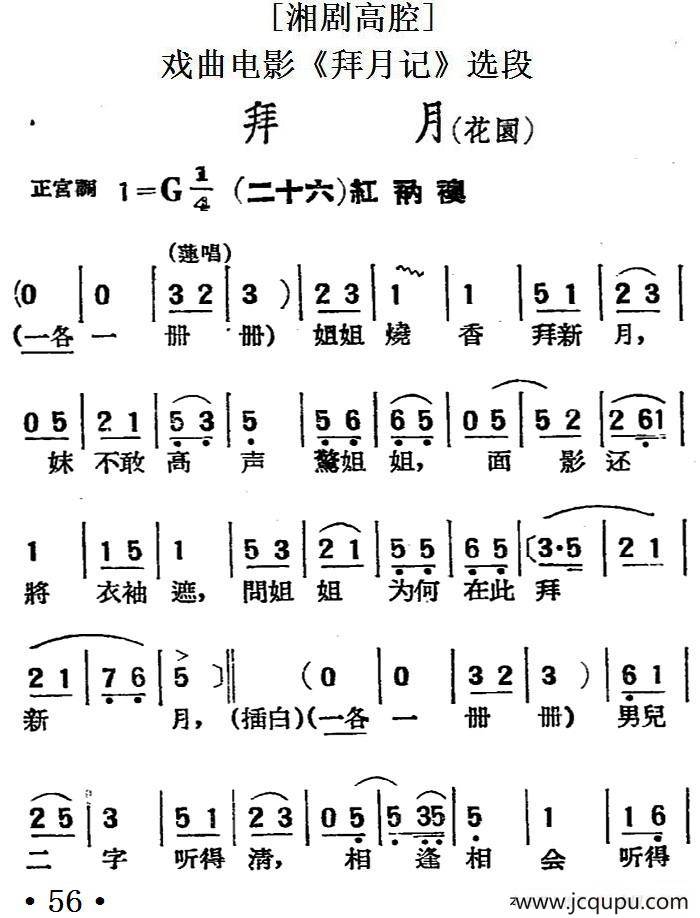 [湘剧高腔]
戏曲电影《拜月记》选段
拜 月(花園)
正宫調 1=G 1/4 (二十六)紅衲襖
(蓮唱)
(0 | 0 | 3 2 | 3 ) | 2 3 | 1 | 1 | 5 1 | 2 3 |
(一各 一 册 册) 姐姐 燒 香 拜新 月,
0 5 | 2 1 | 5 3 | 5 | 5 6 | 6 5 | 0 5 | 5 2 | 2 61 |
妹 不敢 高 声 驚姐 姐, 面 影 还
1 | 1 5 | 1 | 5 3 | 2 1 | 5 5 | 6 5 |〔3·5 | 2 1 |
將 衣袖 遮, 問姐 姐 为何 在此 拜
2 1 | 7 6 | 5 〕‖ (0 | 0 | 3 2 | 3 ) | 6 1 |
新 月, (插白)(一各 一 册 册) 男兒
2 5 | 3 | 5 1 | 2 3 | 0 5 | 5 35 | 5 | 1 | 1 6 |
二 字 听得 清, 相 逢 相 会 听得
·56·
www.jcqupu.com